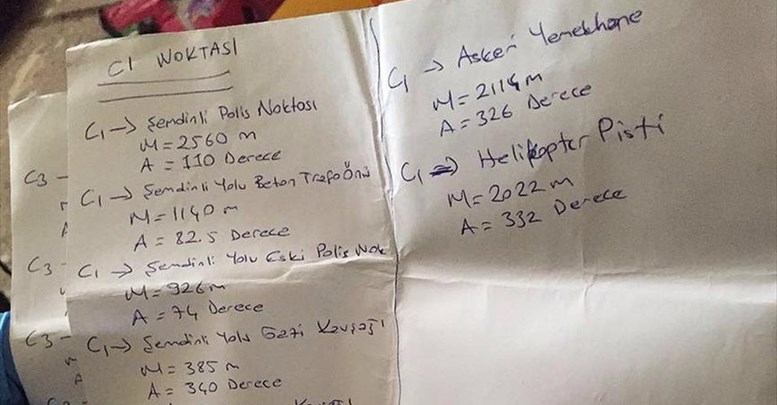 C1 NOKTASI
C1 → Şemdinli Polis Noktası
M = 2560 m
A = 110 Derece
C1 → Şemdinli Yolu Beton Trafo Önü
M = 1140 m
A = 82.5 Derece
C1 → Şemdinli Yolu Eski Polis Nok
M = 926 m
A = 74 Derece
C1 → Şemdinli Yolu Gezi Kavşağı
M = 385 m
A = 340 Derece
C3 -
C3 -
C3 -
C1 → Askeri Yemekhane
M = 2114 m
A = 326 Derece
C1 → Helikopter Pisti
M = 2022 m
A = 332 Derece